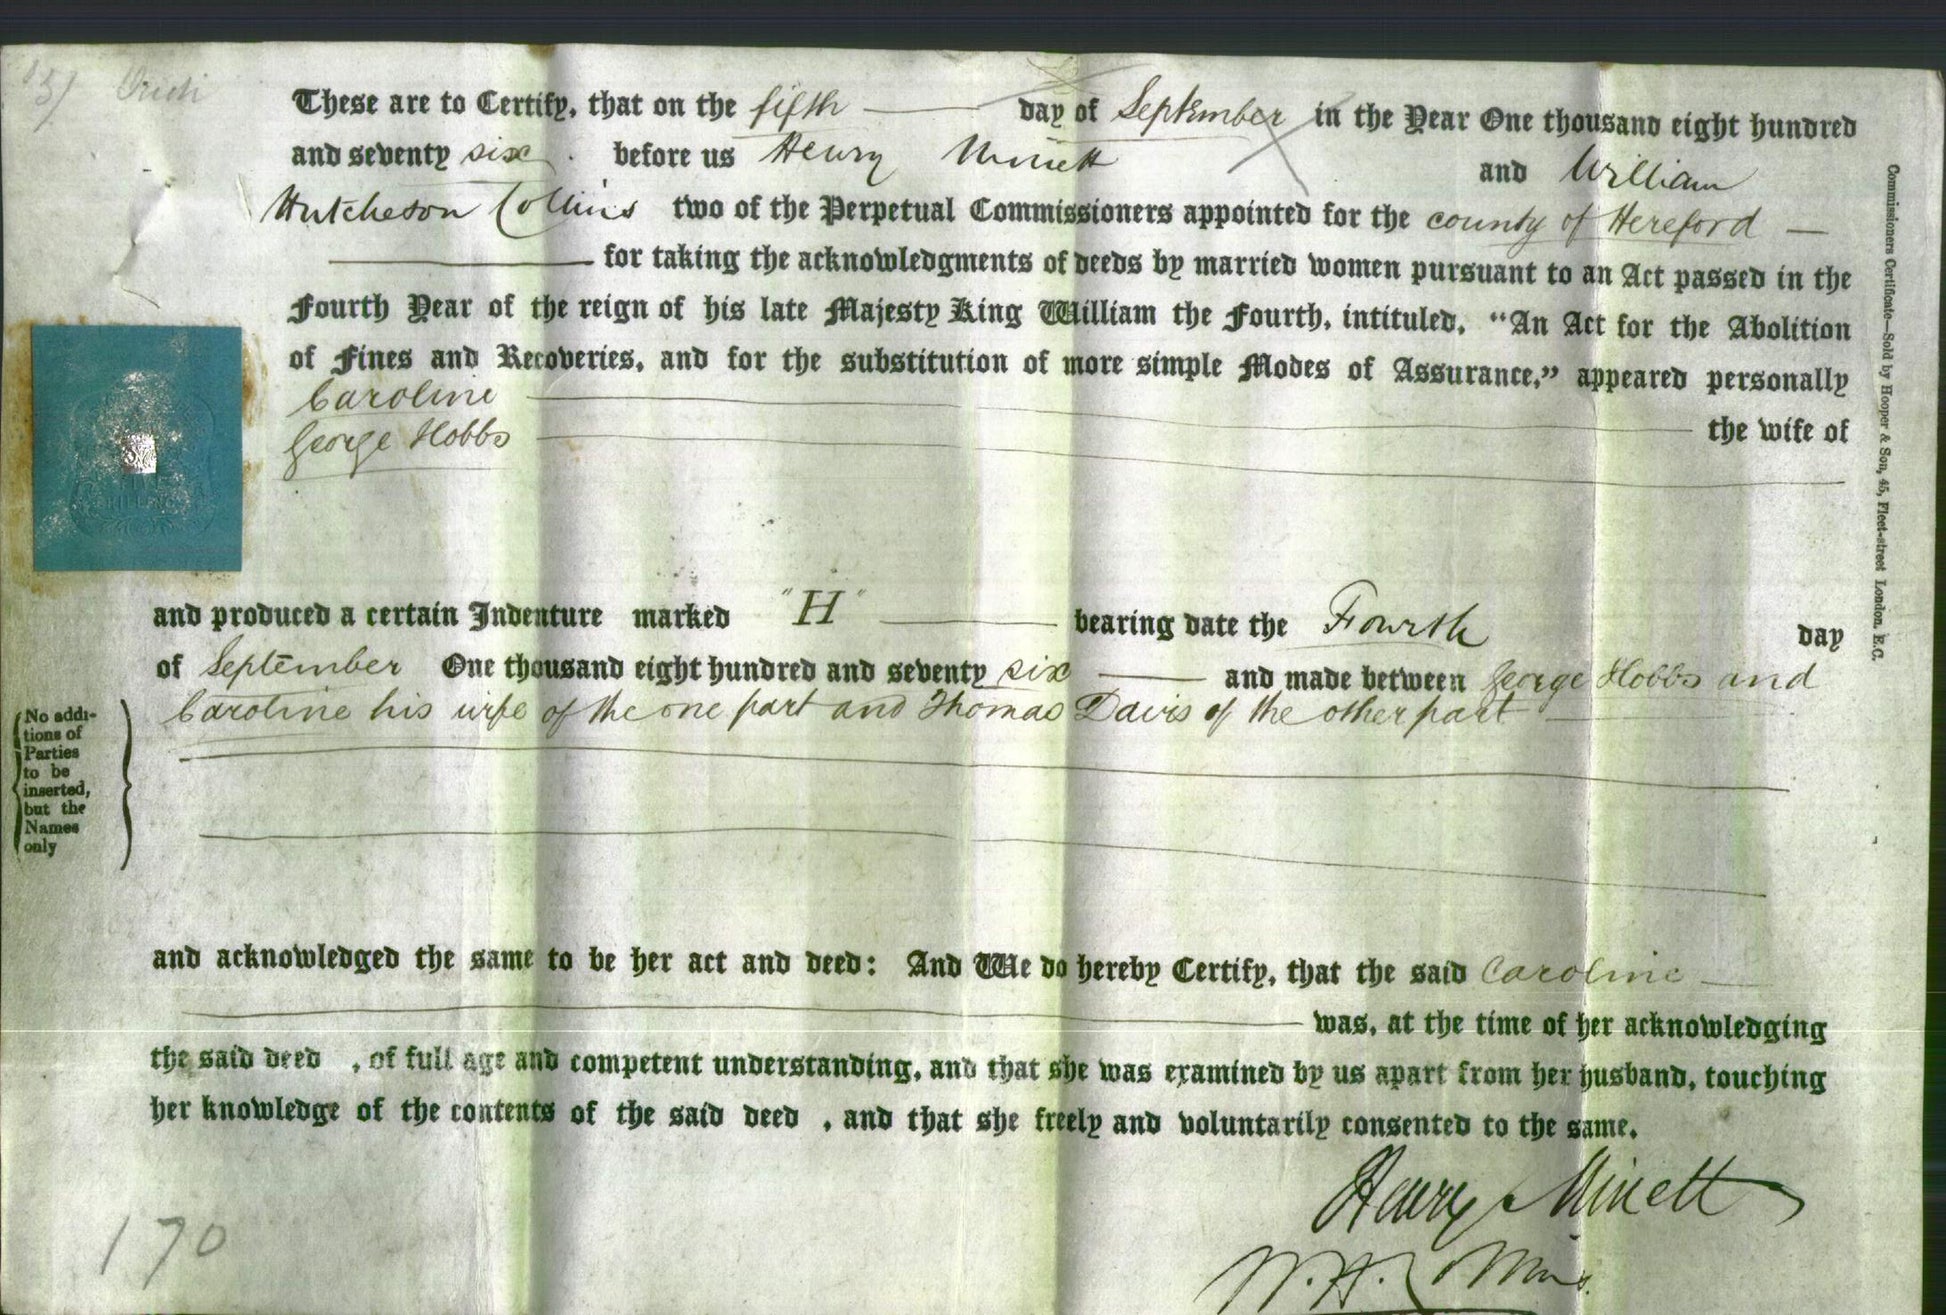 These are to Certify, that on the fifth day of September in the Year One thousand eight hundred
and seventy six. before us Henry Minett and William
Hutcheson Collins two of the Perpetual Commissioners appointed for the county of Hereford
for taking the acknowledgments of deeds by married women pursuant to an Act passed in the
Fourth Year of the reign of his late Majesty King William the Fourth, intituled, "An Act for the Abolition
of Fines and Recoveries, and for the substitution of more simple Modes of Assurance," appeared personally
Caroline the wife of
George Hobbs
and produced a certain Indenture marked "H" bearing date the Fourth day
of September One thousand eight hundred and seventy six and made between George Hobbs and
Caroline his wife of the one part and Thomas Davis of the other part
No addi-
tions of
Parties
to be
inserted,
but the
Names
only
and acknowledged the same to be her act and deed: And We do hereby Certify, that the said Caroline
was, at the time of her acknowledging
the said deed , of full age and competent understanding, and that she was examined by us apart from her husband, touching
her knowledge of the contents of the said deed , and that she freely and voluntarily consented to the same.
Henry Minett
W. H. Collins
170
Commissioners Certificate—Sold by Hooper & Son, 45, Fleet-street London, E.C.